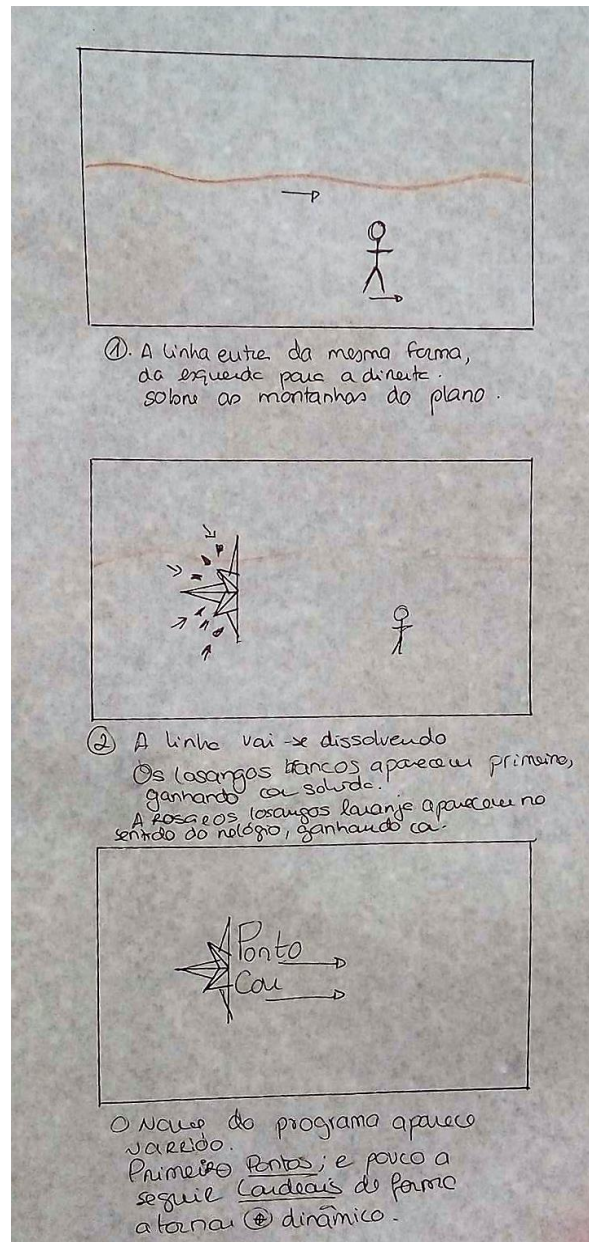 ①. A linha entra da mesma forma,
da esquerda para a direita.
sobre as montanhas do plano.
② A linha vai-se dissolvendo
Os losangos brancos aparecem primeiro,
ganhando cor solida.
A Rosa e os losangos laranja aparecem no
sentido do relógio, ganhando cor.
Ponto
Car
O Nome do programa aparece
varrido.
Primeiro Pontos; e pouco a
seguir Cardeais de forma
a tornar ⊕ dinâmico.